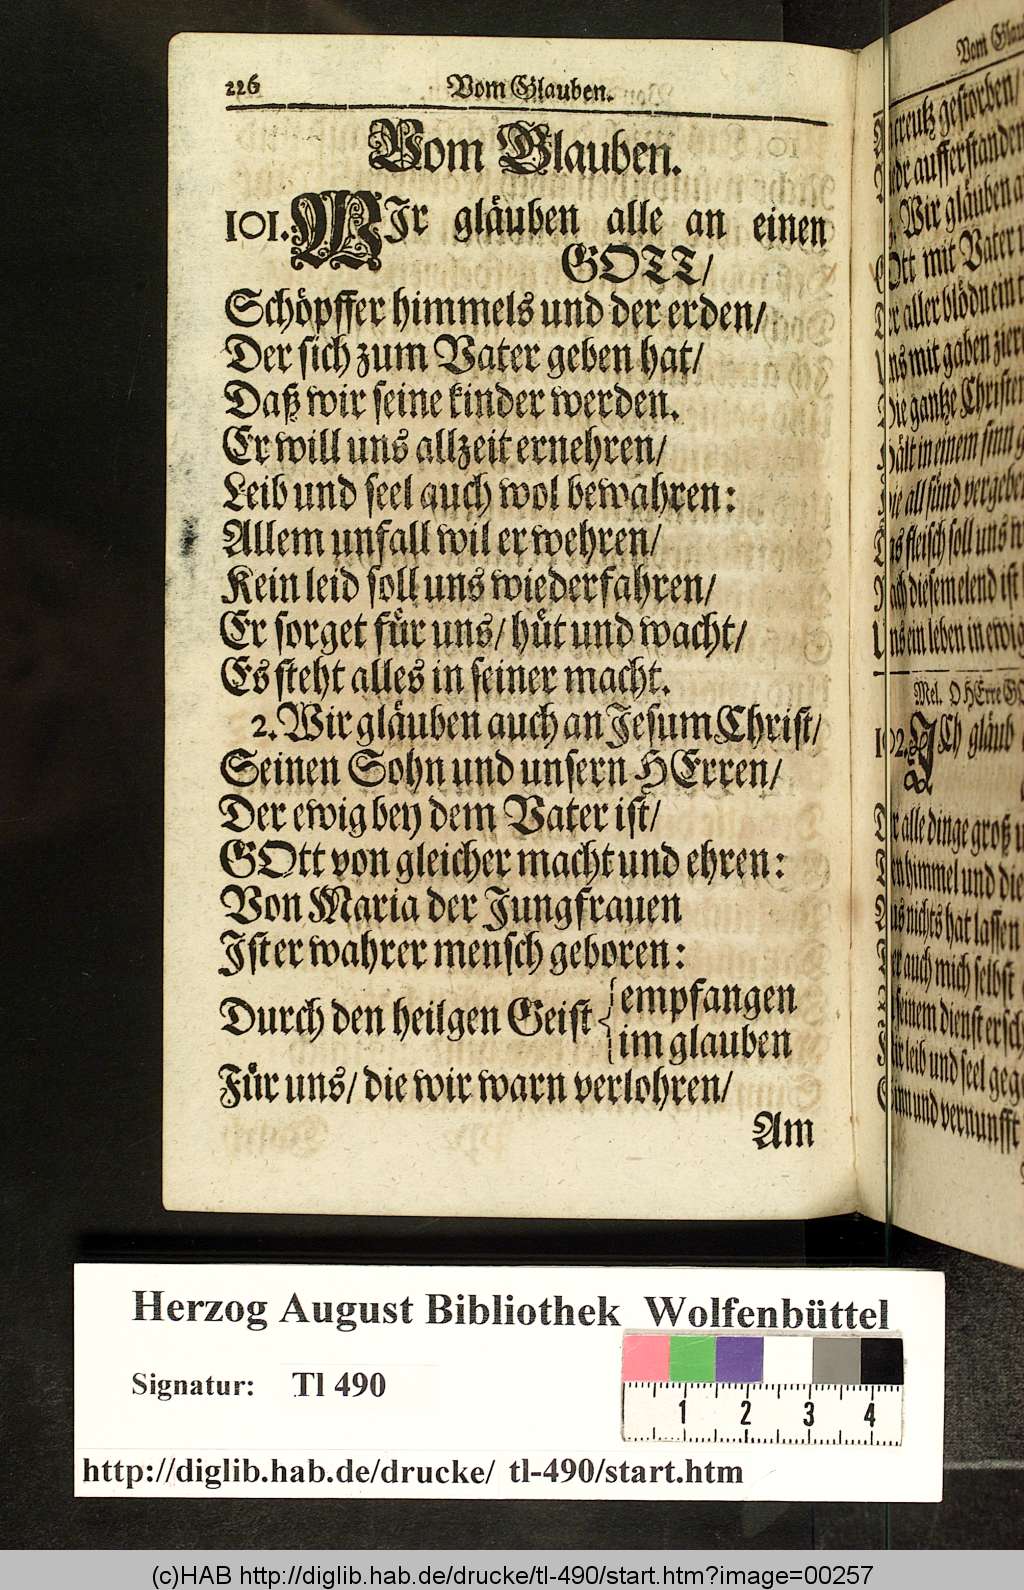 226
Vom Glauben.
Vom Glauben.
101. WIr gläuben alle an einen
GOTT/
Schöpffer himmels und der erden/
Der sich zum Vater geben hat/
Daß wir seine kinder werden.
Er will uns allzeit ernehren/
Leib und seel auch wol bewahren:
Allem unfall wil er wehren/
Kein leid soll uns wiederfahren/
Er sorget für uns/ hüt und wacht/
Es steht alles in seiner macht.
2. Wir gläuben auch an Jesum Christ/
Seinen Sohn und unsern HErren/
Der ewig bey dem Vater ist/
GOtt von gleicher macht und ehren:
Von Maria der Jungfrauen
Ist er wahrer mensch geboren:
Durch den heilgen Geist { empfangen
im glauben
Für uns/ die wir warn verlohren/
Am
Vom
gestorben/
aufferstanden
Wir gläuben
mit Vater
aller blöden
mit gaben
gantze Christen
hält in einem sinn
all sünd vergeben
fleisch soll uns
diesem elend ist
ein leben in ewig
Mel. O HErre
ICh gläub
alle dinge groß
himmel und die
nichts hat lassen
auch mich selbst
seinem dienst
leib und seel
und vernunfft
Herzog August Bibliothek Wolfenbüttel
Signatur: Tl 490
1 2 3 4
http://diglib.hab.de/drucke/ tl-490/start.htm
(c)HAB http://diglib.hab.de/drucke/tl-490/start.htm?image=00257